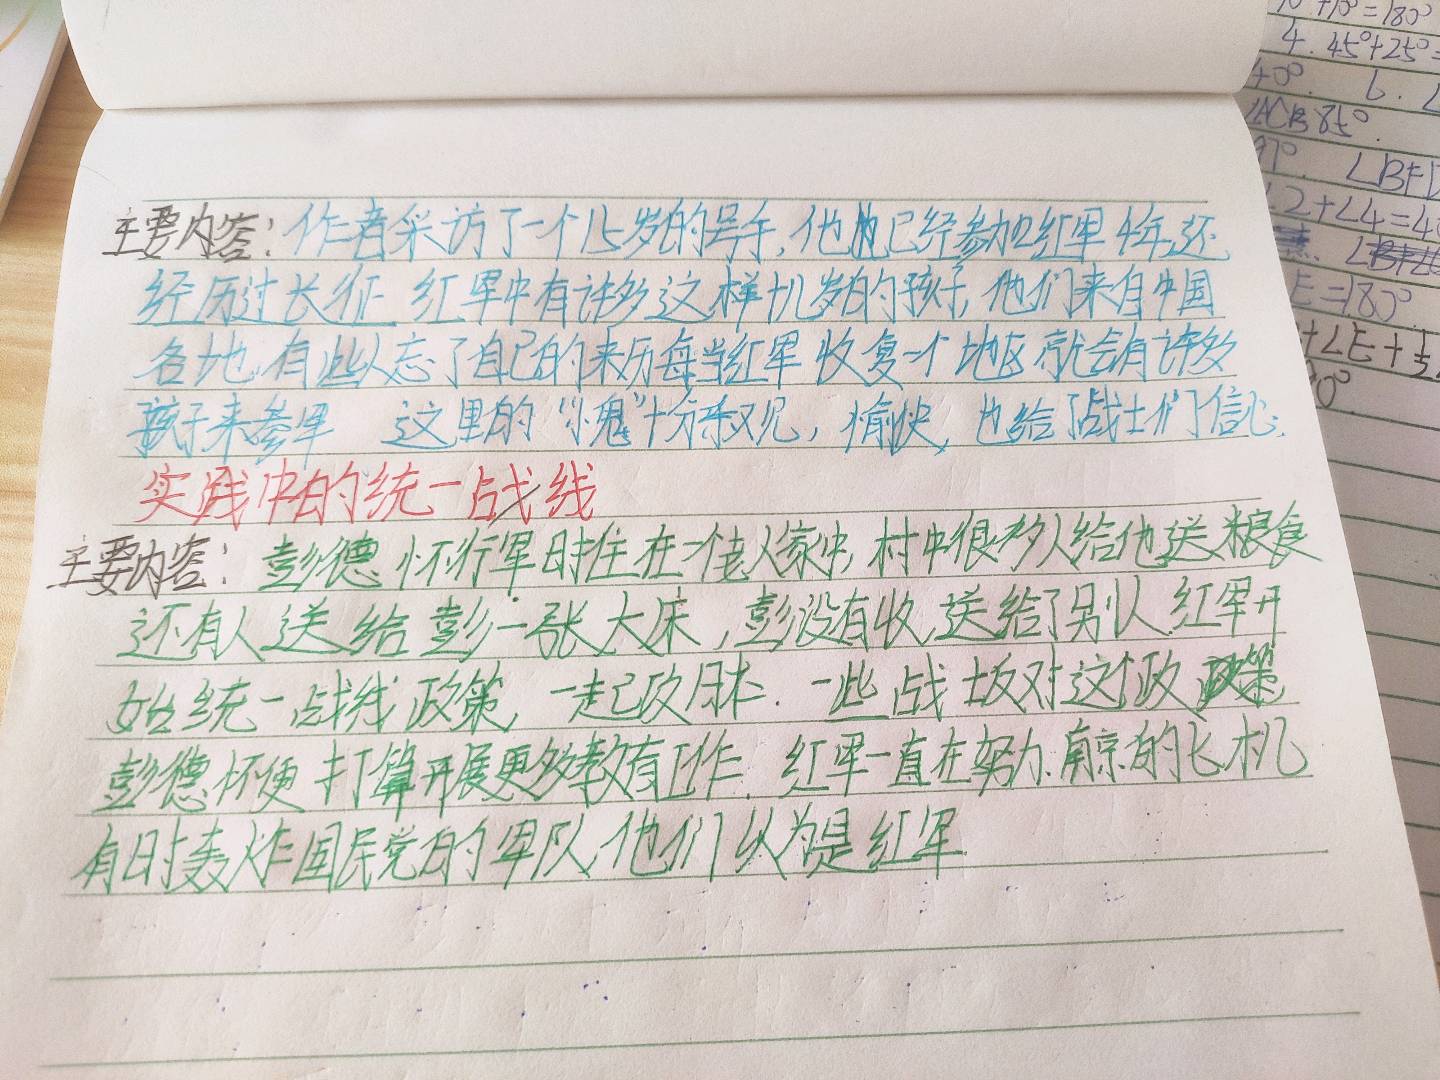 主要内容：作者采访了一个15岁的号手，他已经参加红军4年，还
经历过长征 红军中有许多这样十几岁的孩子，他们来自中国
各地，有些人忘了自己的来历每当红军收复一个地区就会有许多
孩子来参军 这里的“小鬼”十分乐观，愉快，也给了战士们信心.
实践中的统一战线
主要内容：彭德怀行军时住在一个老人家中，村中很多人给他送粮食
还有人送给彭一张大床，彭没有收，送给了别人.红军开
始统一战线政策，一起攻日本.一些战士反对这个政策
彭德怀便打算开展更多教育工作.红军一直在努力.南京的飞机
有时轰炸国民党的军队，他们以为是红军
4.45°+25°=
40°. 6.
∠ACB 85°.
97°. ∠BED
∠2+∠4=
E=180°
+∠E+